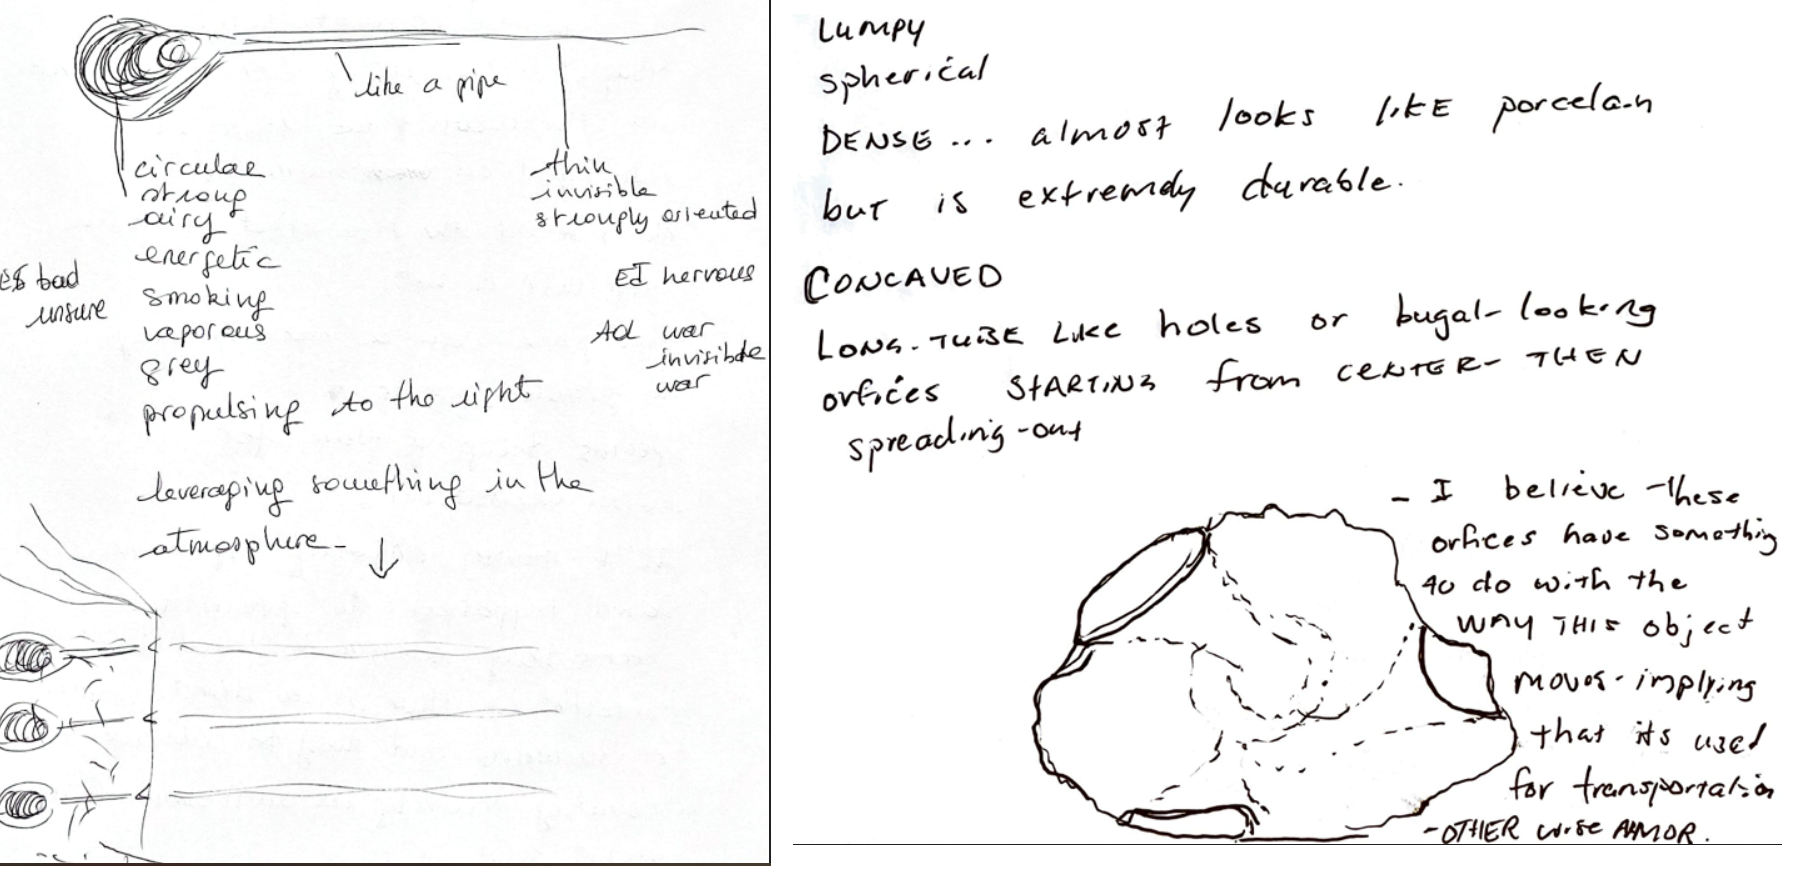 like a pipe
circular
strong
airy
energetic
smoking
vaporous
grey
propulsing to the right
thin
invisible
strongly oriented
bad
unsure
EI nervous
AOL war
invisible
war
leveraging something in the
atmosphere-
Lumpy
spherical
DENSE... almost looks like porcelan
but is extremely durable.
CONCAVED
LONG-TUBE LIKE holes or bugal-looking
orfices STARTING from CENTER- THEN
spreading-out
- I believe these
orfices have something
to do with the
WAY THIS object
moves-implying
that its used
for transportation
-OTHER wise ARMOR.